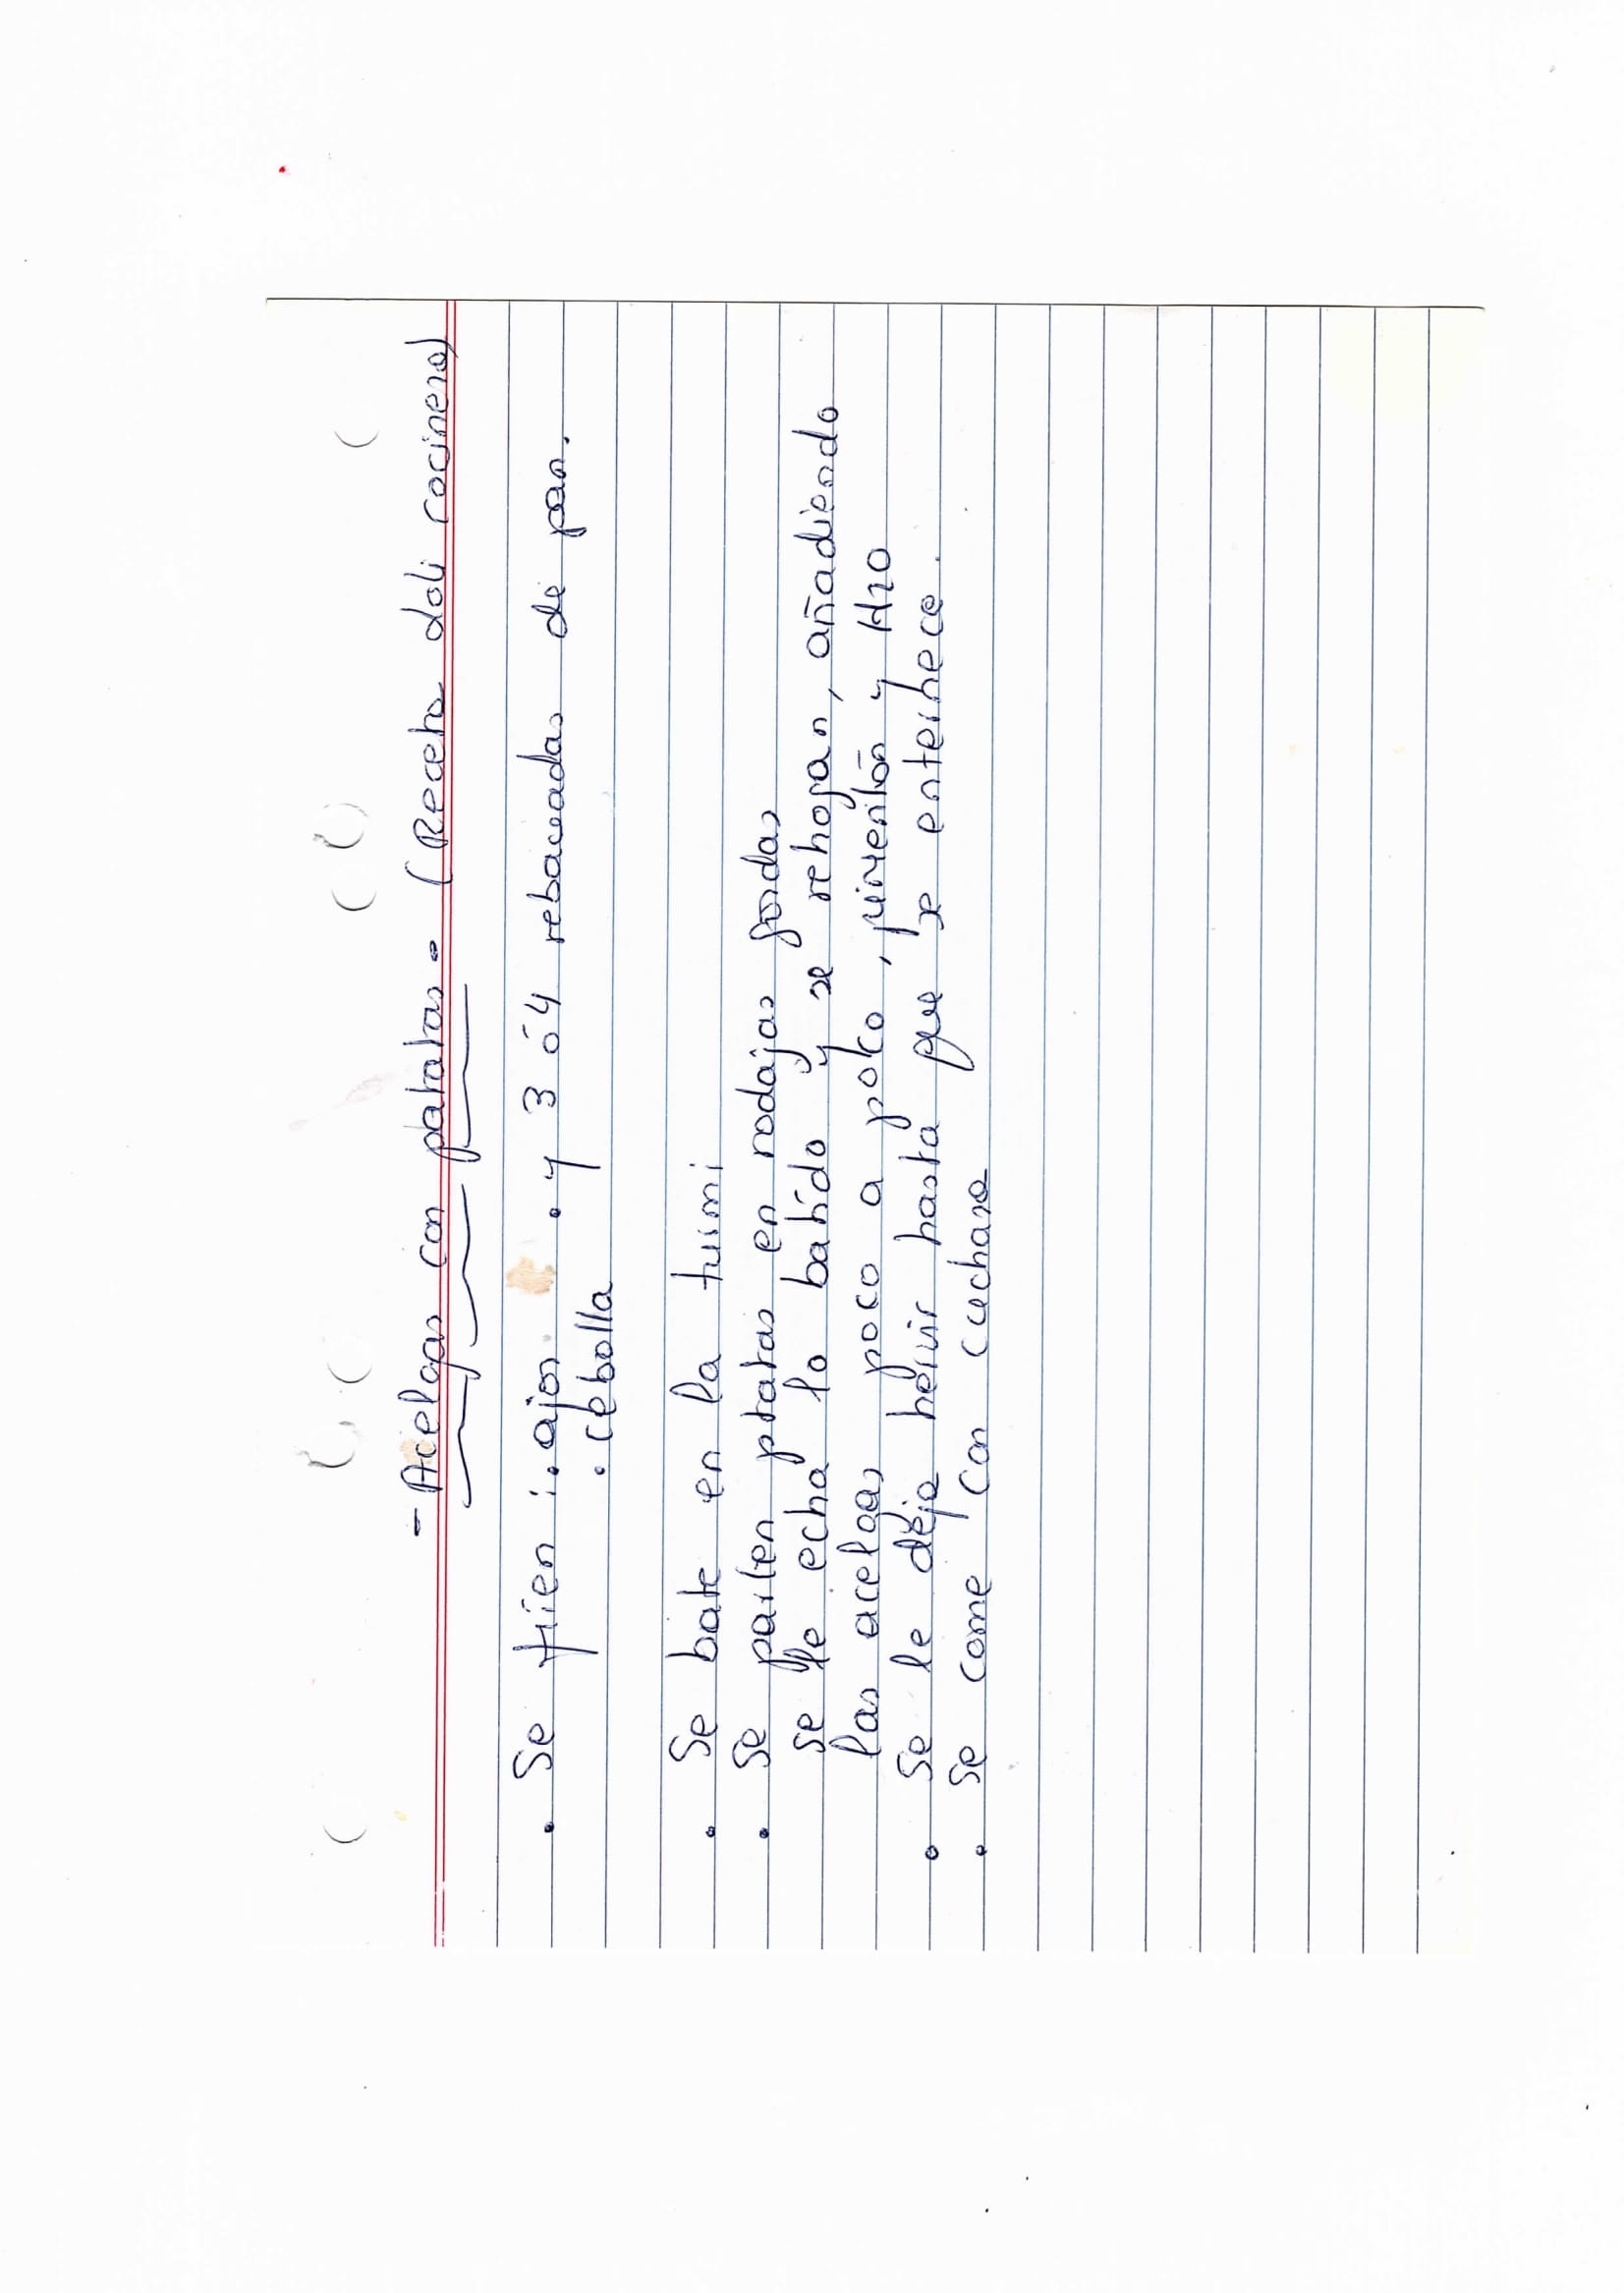 - Acelgas con patatas. (Receta doli cocinera)
. Se frien : . ajos . y 3 ó 4 rebaceadas de pan.
. cebolla
. Se bate en la turmi
. Se parten ptatas en rodajas gordas
se le echa lo batido y se rehogan, añadiendo
las acelgas poco a poco, pimentón y H2O
. Se le deja hervir hasta que se enternece.
. Se come con cuchara